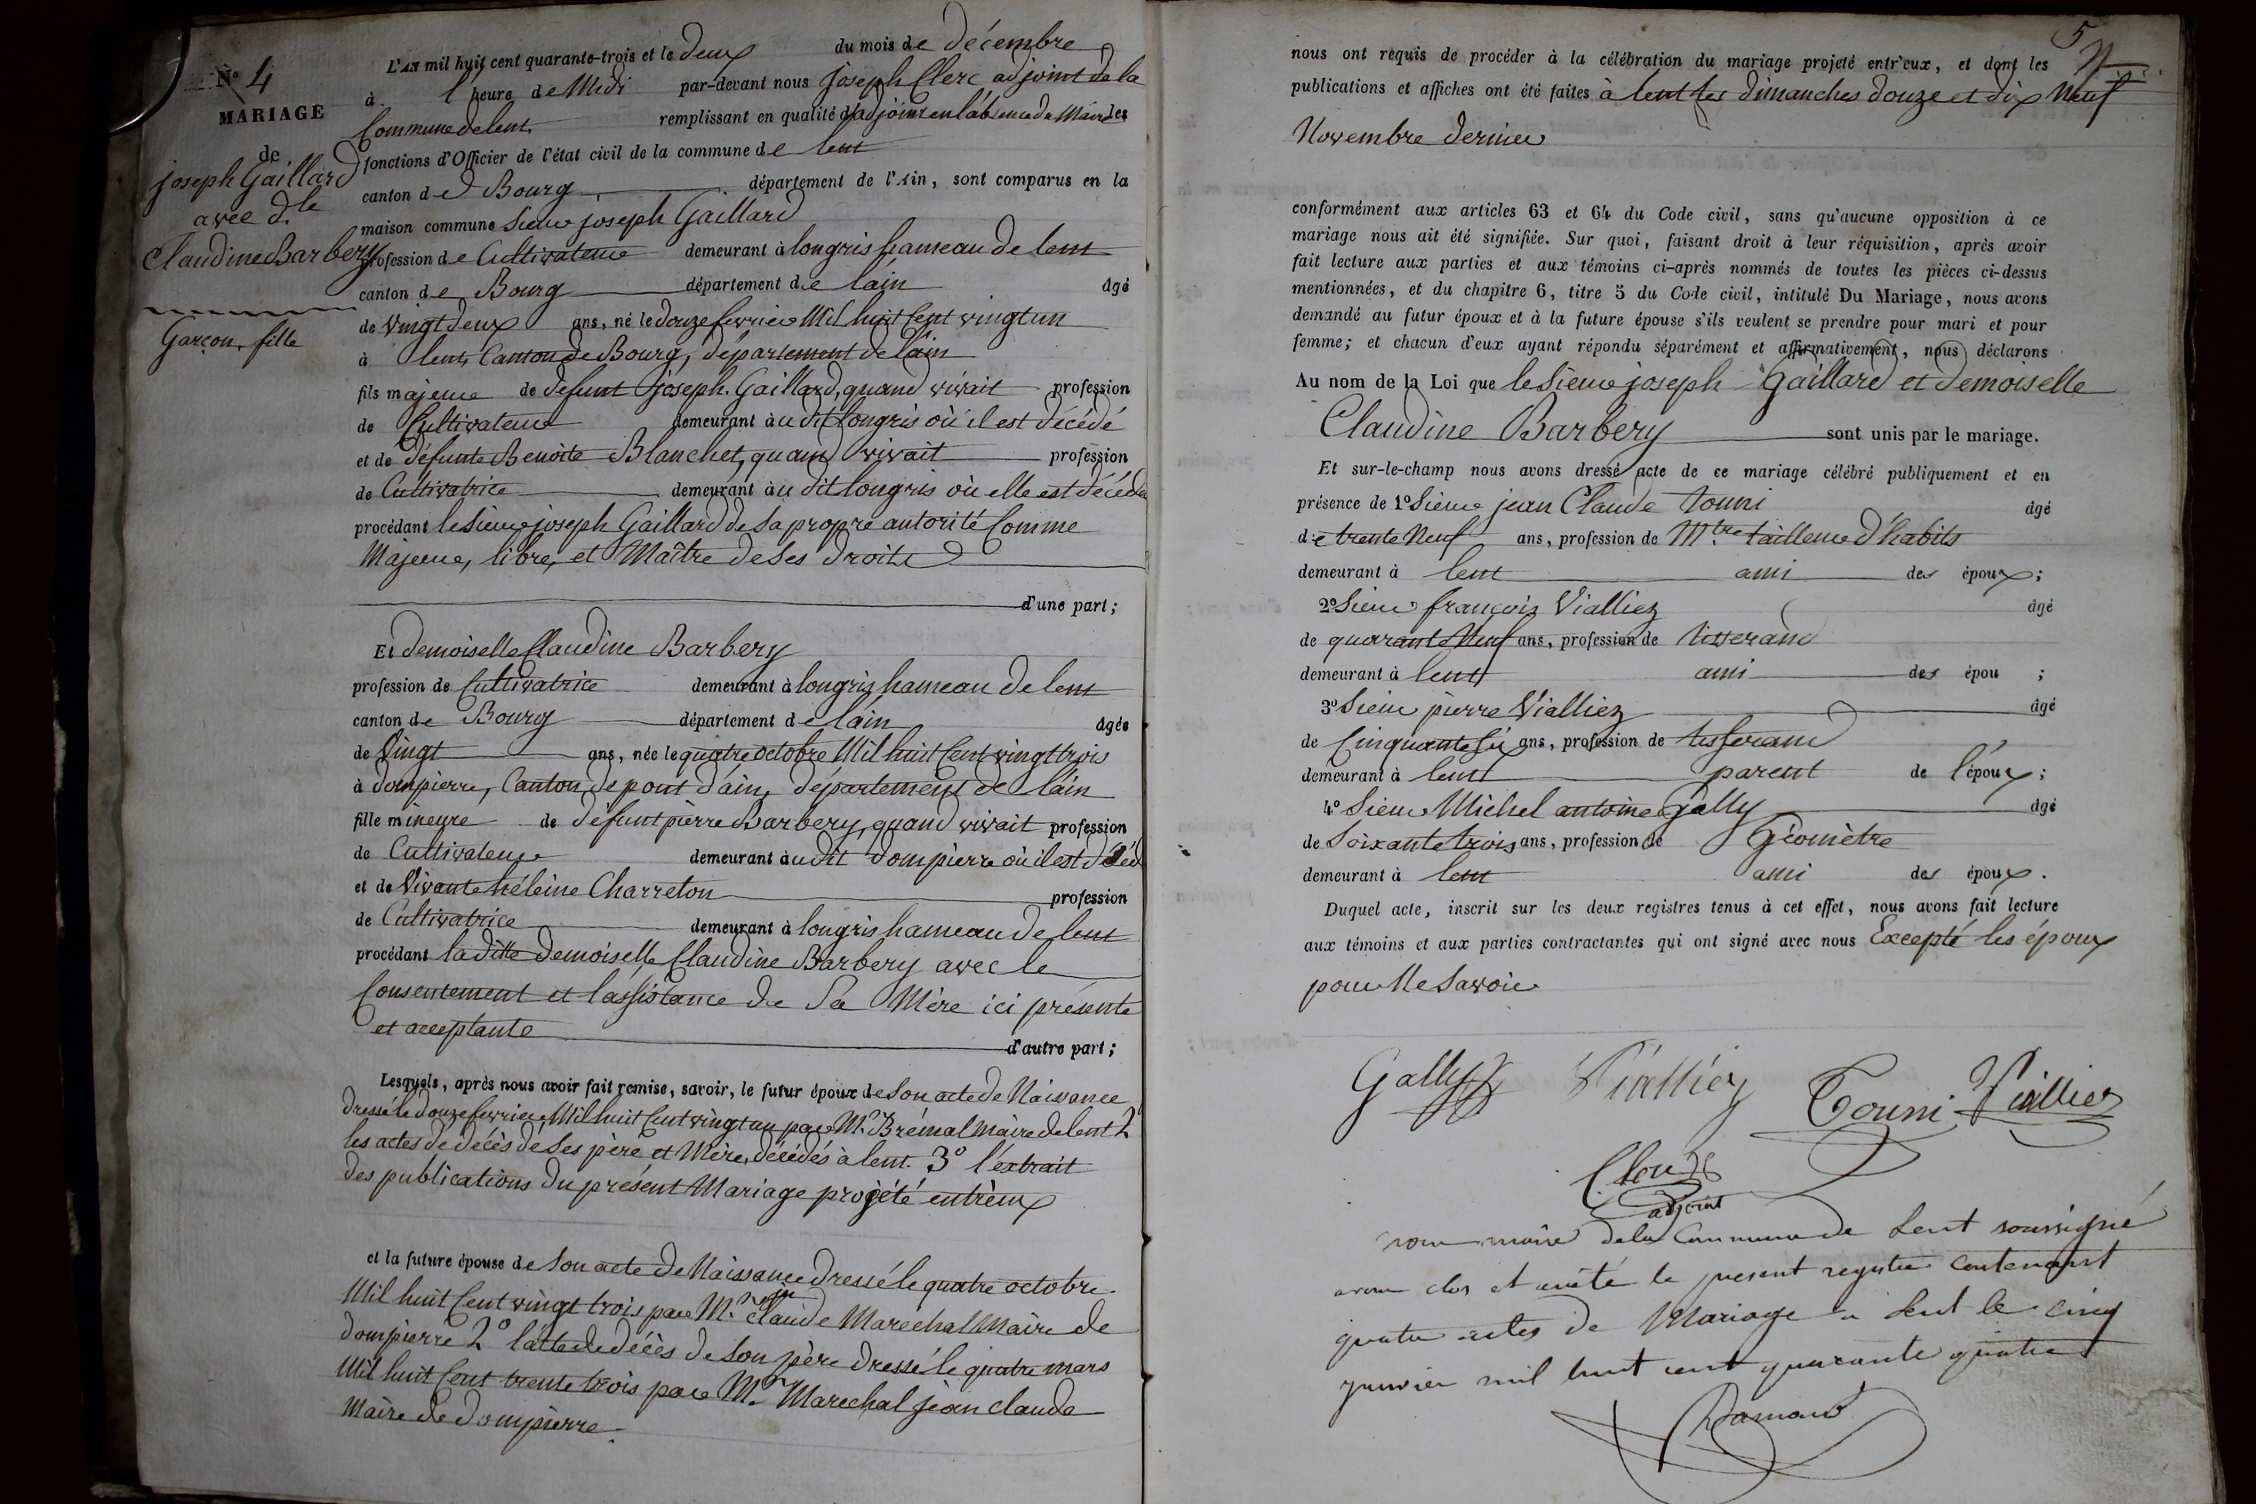 N° 4
MARIAGE
de
joseph Gaillard
avec d.le
Claudine Barbery
Garçon, fille
L'AN mil huit cent quarante-trois et le deux du mois de décembre
à l'heure de Midi par-devant nous joseph Clerc adjoint de la
Commune de lent, remplissant en qualité d'adjoint en l'absence du Maire les
fonctions d'Officier de l'état civil de la commune de lent
canton de Bourg département de l'Ain, sont comparus en la
maison commune Sieur joseph Gaillard
profession de Cultivateur demeurant à longris hameau de lent
canton de Bourg département de lain âgé
de Vingt deux ans, né le douze fevrier Mil huit Cent vingt un
à lent, Canton de Bourg, département de lain
fils majeur de defunt joseph Gaillard, quand vivait profession
de Cultivateur demeurant àu dit longris où il est décédé
et de défunte Benoite Blanchet, quand vivait profession
de Cultivatrice demeurant àu dit longris où elle est décédé
procédant le Sieur joseph Gaillard de Sa propre autorité Comme
Majeur, libre, et Maître de Ses droits
d'une part;
Et demoiselle Claudine Barbery
profession de Cultivatrice demeurant à longris hameau de lent
canton de Bourg département de lain âgée
de Vingt ans, née le quatre octobre Mil huit Cent vingt trois
à dompierre, Canton de pont d'ain, département de lain
fille mineure de défunt pierre Barbery, quand vivait profession
de Cultivateur demeurant àu dit dompierre où il est décéd
et de Vivante héleine Charreton profession
de Cultivatrice demeurant à longris hameau de lent
procédant la ditte demoiselle Claudine Barbery avec le
Consentement et l'assistance de Sa Mère ici présente
et acceptante
d'autre part;
Lesquels, après nous avoir fait remise, savoir, le futur époux de Son acte de Naissance
dressé le douze fevrier Mil huit Cent vingt un par Mr. Brémal Maire de lent 2
les actes de décès de Ses père et Mère, décédés à lent. 3° l'extrait
des publications du présent Mariage projété entr'eux
et la future épouse de Son acte de Naissance dressé le quatre octobre
Mil huit Cent vingt trois par Mr. jean claude Marechal Maire de
dompierre 2° l'atte de décès de Son père dressé le quatre mars
Mil huit Cent trente trois par Mr. Marechal jean claude
Maire de dompierre.
5
nous ont requis de procéder à la célébration du mariage projeté entr'eux, et dont les
publications et affiches ont été faites à lent les dimanches douze et dix Neuf
Novembre dernier
conformément aux articles 63 et 64 du Code civil, sans qu'aucune opposition à ce
mariage nous ait été signifiée. Sur quoi, faisant droit à leur réquisition, après avoir
fait lecture aux parties et aux témoins ci-après nommés de toutes les pièces ci-dessus
mentionnées, et du chapitre 6, titre 5 du Code civil, intitulé Du Mariage, nous avons
demandé au futur époux et à la future épouse s'ils veulent se prendre pour mari et pour
femme; et chacun d'eux ayant répondu séparément et affirmativement, nous déclarons
Au nom de la Loi que le Sieur joseph Gaillard et demoiselle
Claudine Barbery sont unis par le mariage.
Et sur-le-champ nous avons dressé acte de ce mariage célébré publiquement et en
présence de 1° Sieur jean Claude touni âgé
de trente Neuf ans, profession de Mtre tailleur d'habits
demeurant à lent ami des époux;
2° Sieur françois Vialliez âgé
de quarante Neuf ans, profession de tisserand
demeurant à lent ami des épou ;
3° Sieur pierre Vialliez âgé
de Cinquante Six ans, profession de tisserand
demeurant à lent parent de l'époux;
4° Sieur Michel antoine Gally âgé
de Soixante trois ans, profession de Géomètre
demeurant à lent ami des époux.
Duquel acte, inscrit sur les deux registres tenus à cet effet, nous avons fait lecture
aux témoins et aux parties contractantes qui ont signé avec nous Excepté les époux
pour Ne Savoir
Gally Vialliez Touni Viallier
Clerc
adjoint
nous maire de la Commune de Lent soussigné
avons clos et arrêté le présent registre contenant
quatre actes de Mariage à Lent le cinq
janvier mil huit cent quarante quatre